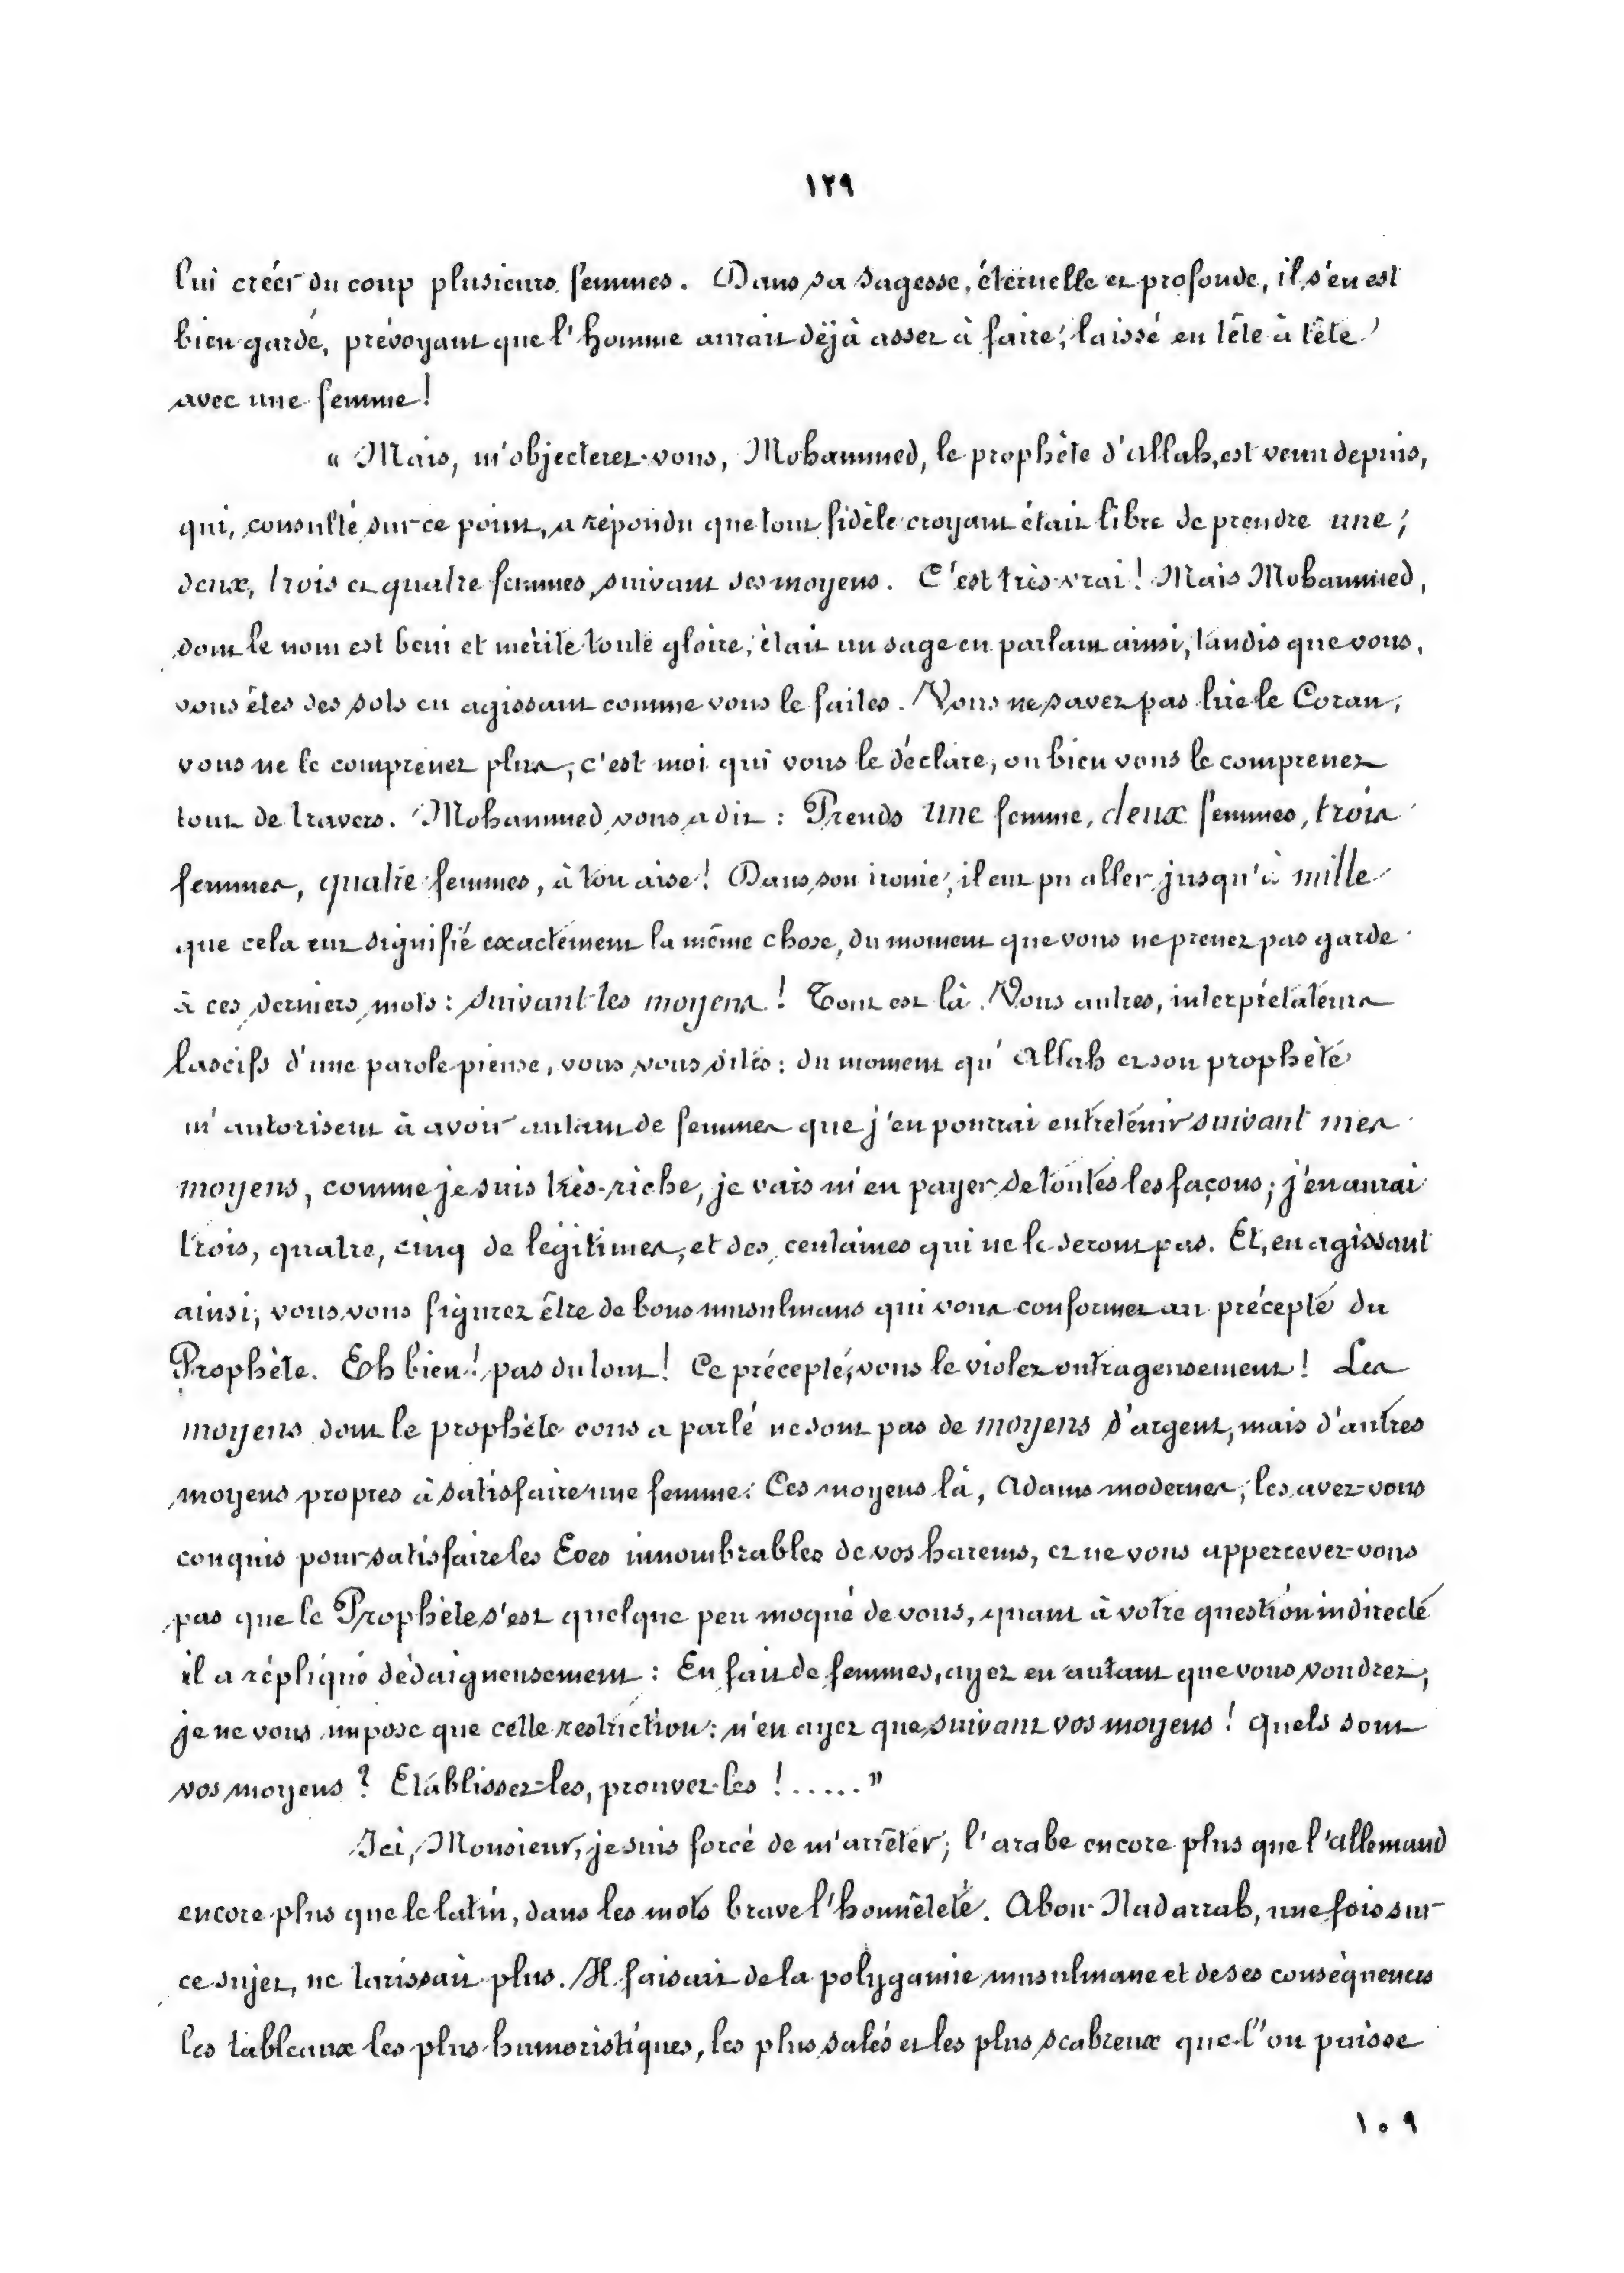 ١٢٩
lui créer du coup plusieurs femmes. Dans sa sagesse, éternelle et profonde, il s'en est
bien gardé, prévoyant que l'homme aurait déjà assez à faire, laissé en tête à tête
avec une femme!
« Mais, m'objecterez-vous, Mohammed, le prophète d'Allah, est venu depuis,
qui, consulté sur ce point, a répondu que tout fidèle croyant était libre de prendre une,
deux, trois et quatre femmes, suivant ses moyens. C'est très-vrai! Mais Mohammed,
dont le nom est beni et mérite toute gloire, était un sage en parlant ainsi, tandis que vous,
vous êtes des sots en agissant comme vous le faites. Vous ne savez pas lire le Coran,
vous ne le comprenez plus, c'est moi qui vous le déclare, ou bien vous le comprenez
tout de travers. Mohammed vous a dit : Prends une femme, deux femmes, trois
femmes, quatre femmes, à ton aise! Dans son ironie, il eut pu aller jusqu'à mille
que cela eut signifié exactement la même chose, du moment que vous ne prenez pas garde
à ces derniers mots : suivant tes moyens! Tout est là. Vous autres, interprétateurs
lascifs d'une parole pieuse, vous vous dites : du moment qu'Allah et son prophète
m'autorisent à avoir autant de femmes que j'en pourrai entretenir suivant mes
moyens, comme je suis très-riche, je vais m'en payer de toutes les façons; j'en aurai
trois, quatre, cinq de légitimes, et des centaines qui ne le seront pas. Et, en agissant
ainsi, vous vous figurez être de bons musulmans qui vous conformez au précepte du
Prophète. Eh bien! pas du tout! Ce précepte, vous le violez outrageusement! Les
moyens dont le prophète vous a parlé ne sont pas de moyens d'argent, mais d'autres
moyens propres à satisfaire une femme. Ces moyens là, Adams modernes, les avez-vous
conquis pour satisfaire les Eves innombrables de vos harems, et ne vous appercevez-vous
pas que le Prophète s'est quelque peu moqué de vous, quant à votre question indirecte
il a répliqué dédaigneusement : En fait de femmes, ayez en autant que vous voudrez,
je ne vous impose que cette restriction : n'en ayez que suivant vos moyens! Quels sont
vos moyens? Etablissez-les, prouvez-les !.....”
Ici, Monsieur, je suis forcé de m'arrêter; l'arabe encore plus que l'allemand
encore plus que le latin, dans les mots brave l'honnêteté. Abou-Naddarrah, une fois sur
ce sujet, ne tarissait plus. Il faisait de la polygamie musulmane et de ses conséquences
les tableaux les plus humoristiques, les plus salés et les plus scabreux que l'on puisse
١٠٩